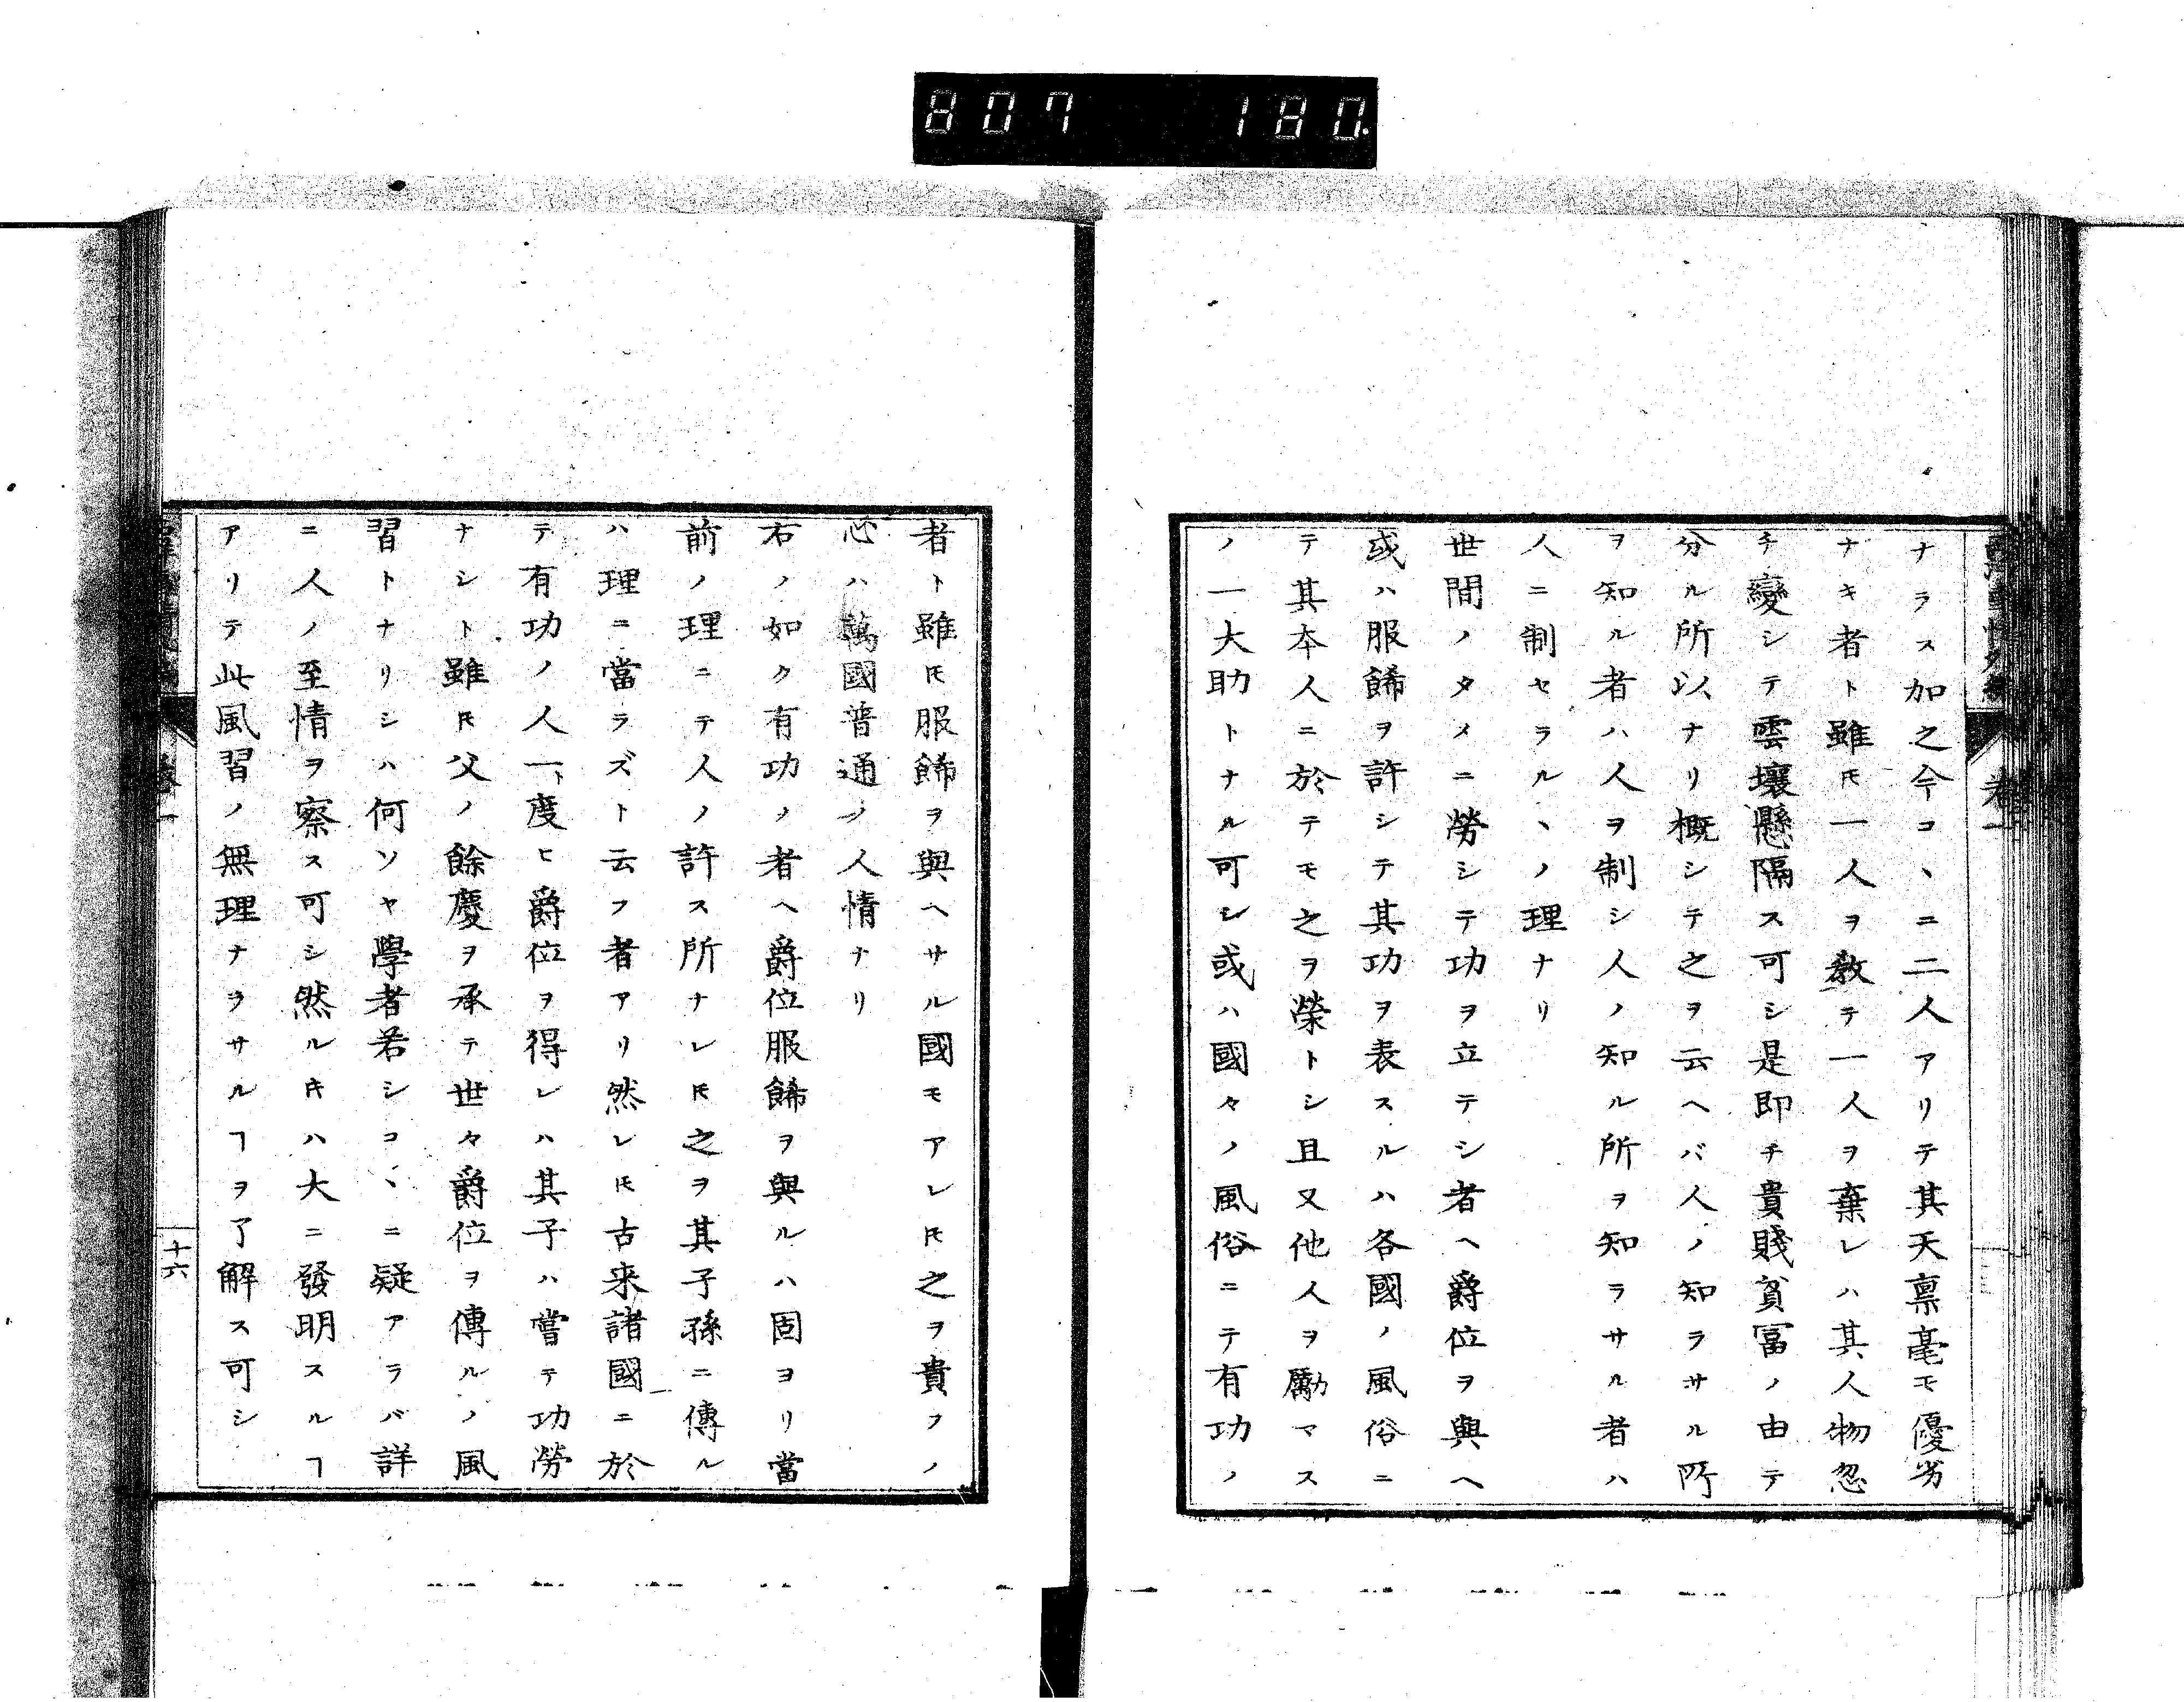 807 180.
西洋事情外編 卷一
ナラス加之今コヽニ二人アリテ其天禀毫モ優劣
ナキ者ト雖𪜈一人ヲ教テ一人ヲ棄レハ其人物忽
チ變シテ雲壤懸隔ス可シ是即チ貴賤貧冨ノ由テ
分ル所以ナリ概シテ之ヲ云ヘバ人ノ知ラサル所
ヲ知ル者ハ人ヲ制シ人ノ知ル所ヲ知ラサル者ハ
人ニ制セラルヽノ理ナリ
世間ノタメニ勞シテ功ヲ立テシ者ヘ爵位ヲ與ヘ
或ハ服餙ヲ許シテ其功ヲ表スルハ各國ノ風俗ニ
テ其本人ニ於テモ之ヲ榮トシ且又他人ヲ勵マス
ノ一大助トナル可シ或ハ國々ノ風俗ニテ有功ノ
者ト雖𪜈服餙ヲ與ヘサル國モアレ𪜈之ヲ貴フノ
心ハ萬國普通ノ人情ナリ
右ノ如ク有功ノ者ヘ爵位服餙ヲ與ルハ固ヨリ當
前ノ理ニテ人ノ許ス所ナレ𪜈之ヲ其子孫ニ傳ル
ハ理ニ當ラズト云フ者アリ然レ𪜈古来諸國ニ於
テ有功ノ人一ト度ヒ爵位ヲ得レハ其子ハ嘗テ功勞
ナシト雖𪜈父ノ餘慶ヲ承テ世々爵位ヲ傳ルノ風
習トナリシハ何ソヤ學者若シコヽニ疑アラバ詳
ニ人ノ至情ヲ察ス可シ然ル𪜈ハ大ニ發明スルヿ
アリテ此風習ノ無理ナラサルヿヲ了解ス可シ
卷一
十六